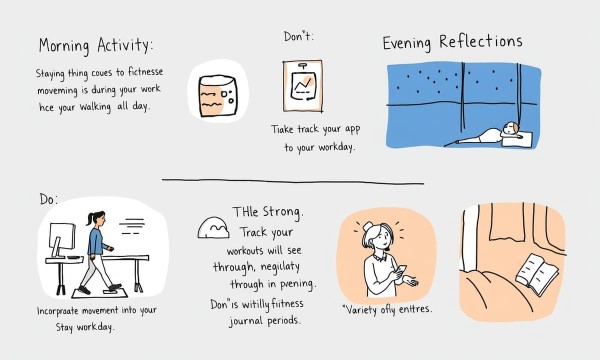 Morning Activity:
Staying thing coues to fictnesse
moveming is during your work
hce your walking all day.
Don"t:
Tiake track your app
to your workday.
Evening Reflections
Do:
Incorproate movement into your
Stay workday.
THle Strong.
Track your
workouts will see
through, negilaty
through in pening.
Don"is witilly fitness
journal periods.
"Variety ofly enitres.